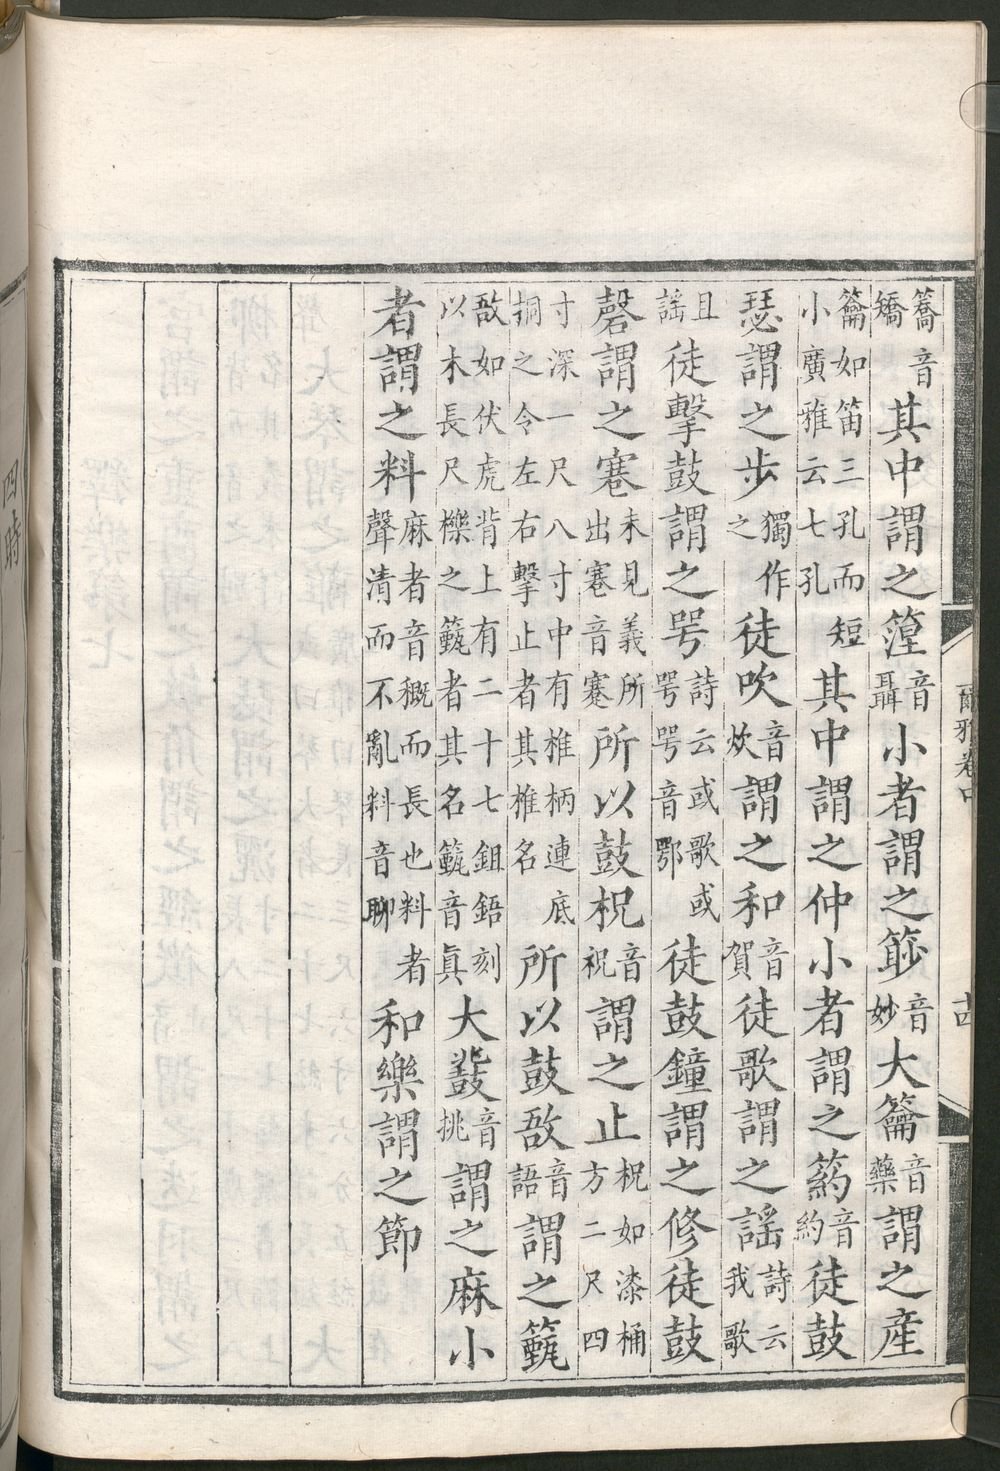 簥音其中謂之篞音聶小者謂之篎音妙大籥音藥謂之產
籥如笛三孔而短小廣雅云七孔其中謂之仲小者謂之箹音約徒鼓
瑟謂之步獨作之徒吹音炊謂之和音賀徒歌謂之謠詩云我歌
且謠徒擊鼓謂之咢詩云或歌或咢咢音鄂徒鼓鐘謂之修徒鼓
磬謂之寋未見義所出寋音蹇所以鼓柷音祝謂之止柷如漆桶方二尺四
寸深一尺八寸中有椎柄連底挏之令左右擊止者其椎名所以鼓敔音語謂之籈
敔如伏虎背上有二十七鉏鋙刻以木長尺櫟之籈者其名籈音真大鼗音挑謂之麻小
者謂之料麻者音穊而長也料者聲清而不亂料音聊和樂謂之節
爾雅卷中
十四
四時